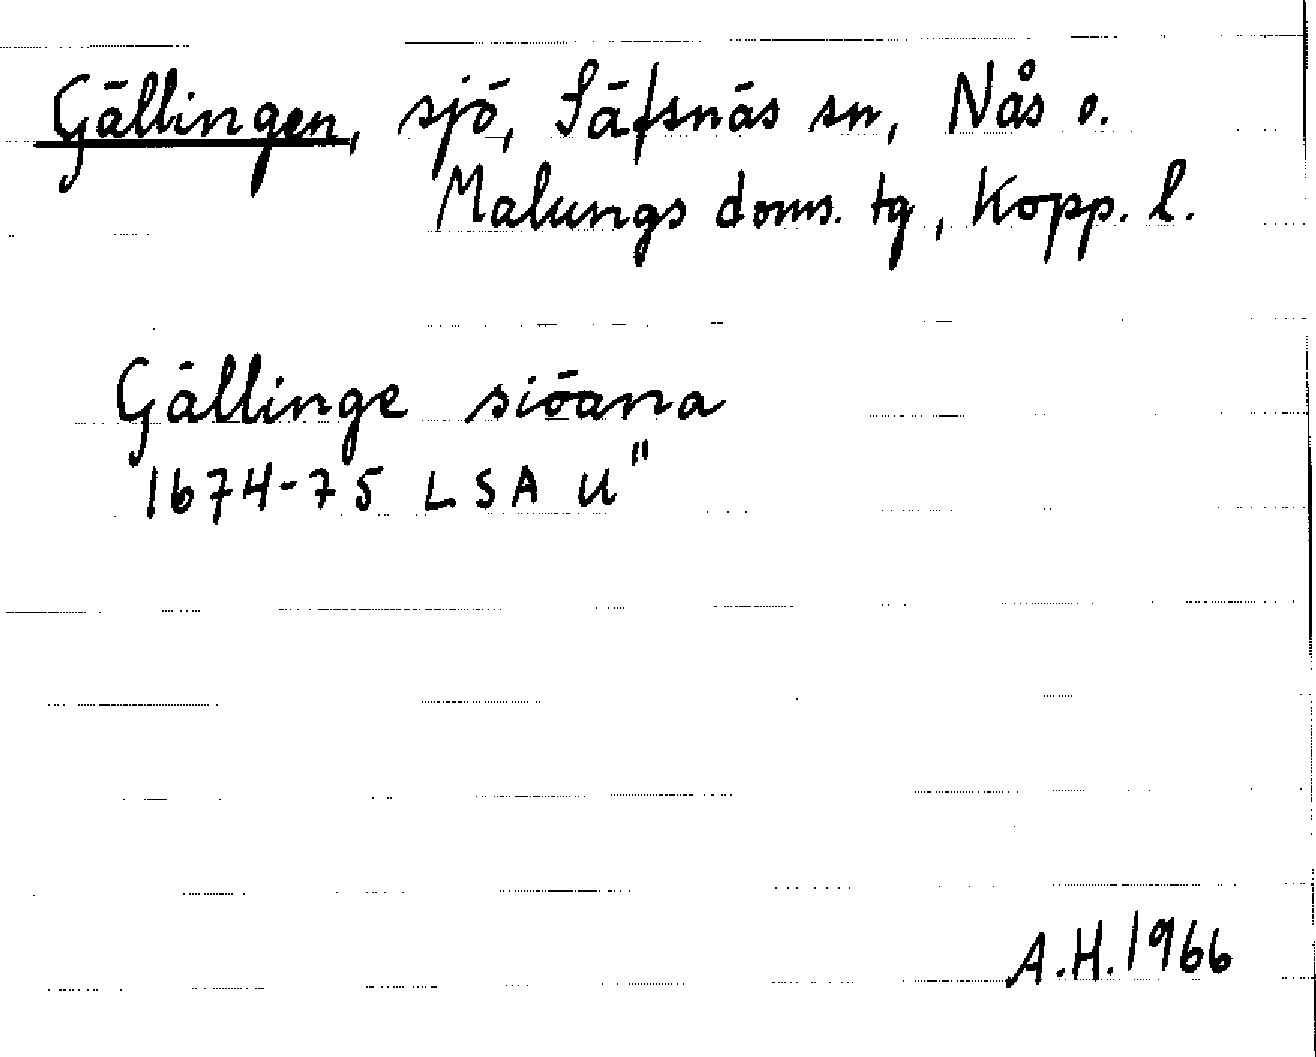 Gällingen, sjö, Säfsnäs sn, Nås o.
Malungs doms. tg, Kopp. l.
Gällinge siöana
1674-75 LSA U"
A.H. 1966